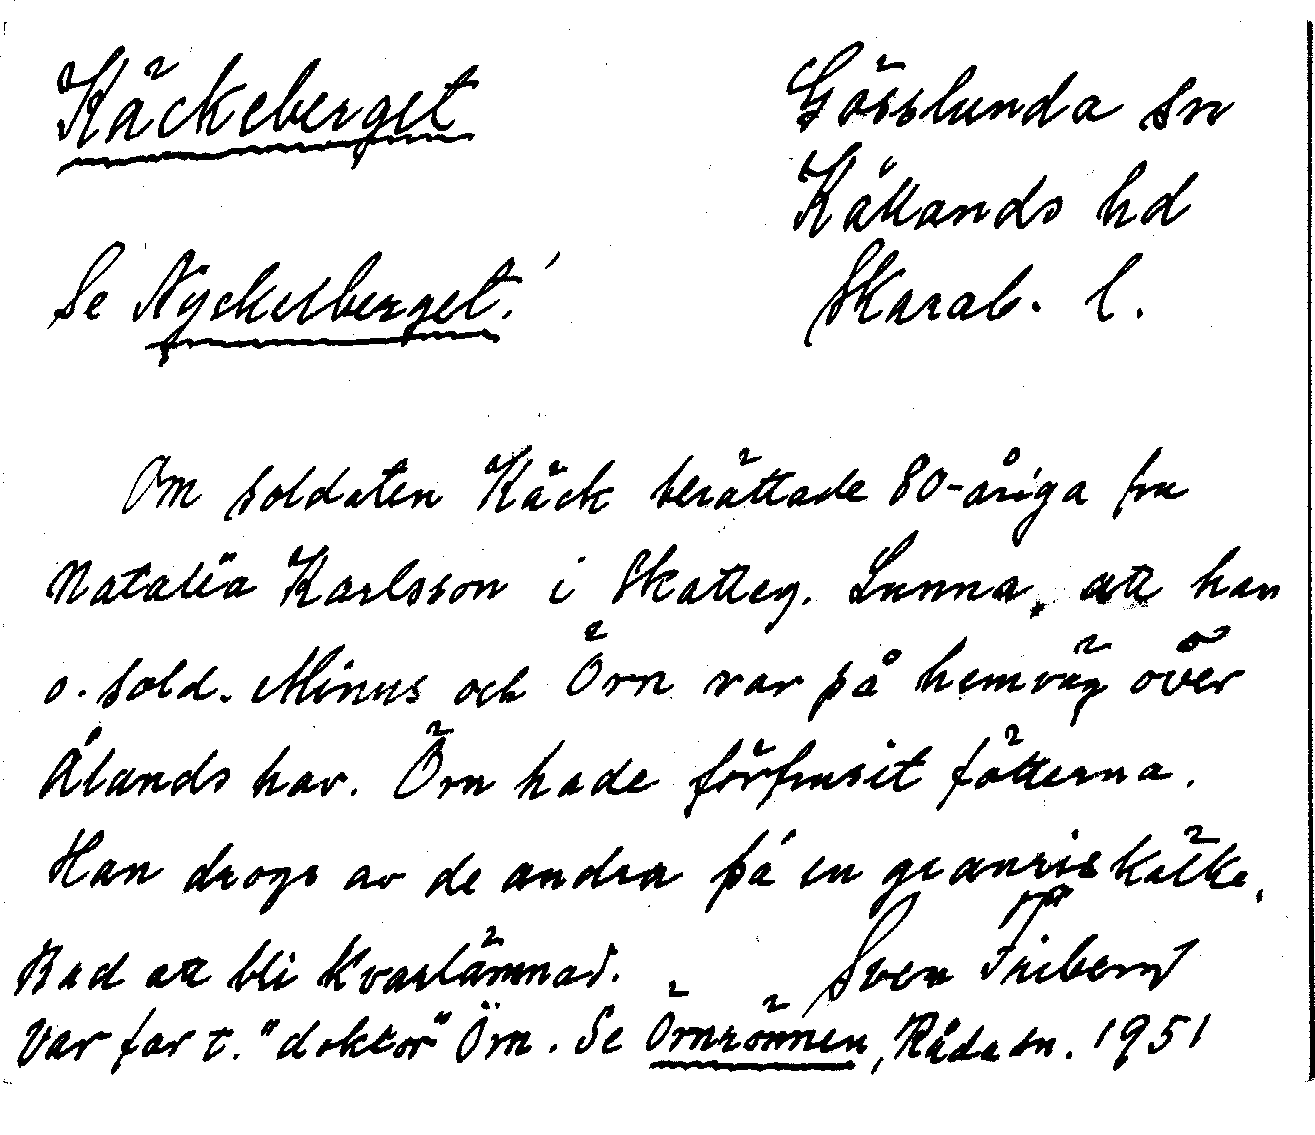 Käckeberget
Gösslunda sn
Kållands hd
Skarab. l.
Se Nyckelberget!
Om soldaten Käck berättade 80-åriga fru
Natalia Karlsson i Skatteg. Lunna, att han
o. sold. Minus och Örn var på hemväg över
Ålands hav. Örn hade förfrusit fötterna.
Han drogs av de andra på en granriskälke.
Bad att bli kvarlämnad.
Sven Friberg
Var far t. "doktor" Örn. Se Örnrönnen, Råda sn. 1951